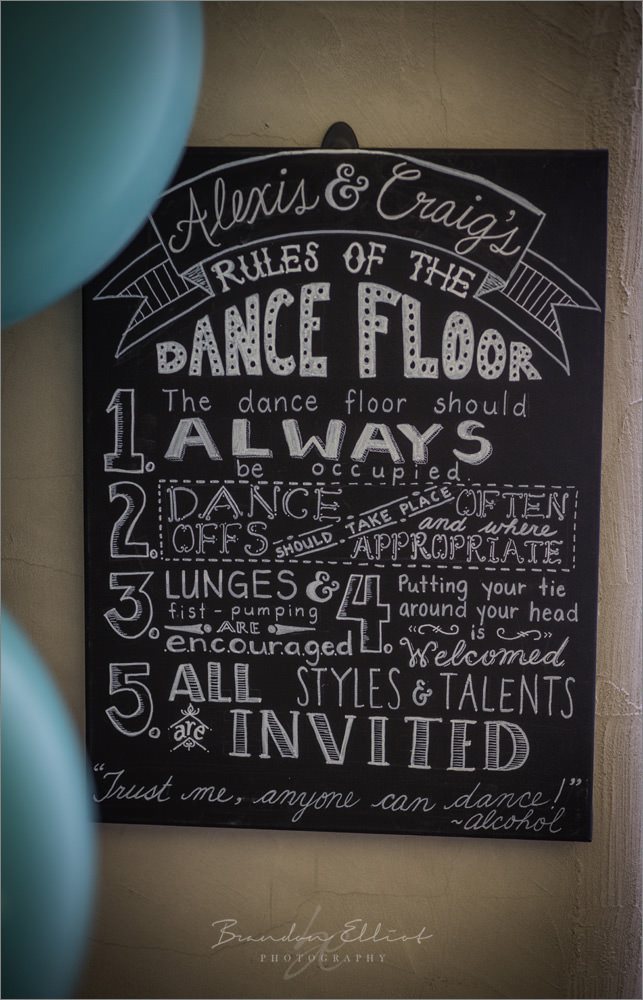 Alexis & Craig's
RULES OF THE
DANCE FLOOR
1. The dance floor should
ALWAYS
be occupied.
2. DANCE OFFS SHOULD TAKE PLACE OFTEN
and where
APPROPRIATE
3. LUNGES &
fist-pumping
ARE
encouraged
4. Putting your tie
around your head
is
Welcomed
5. ALL STYLES & TALENTS
are INVITED
"Trust me, anyone can dance!"
~alcohol
Brandon Elliot
PHOTOGRAPHY